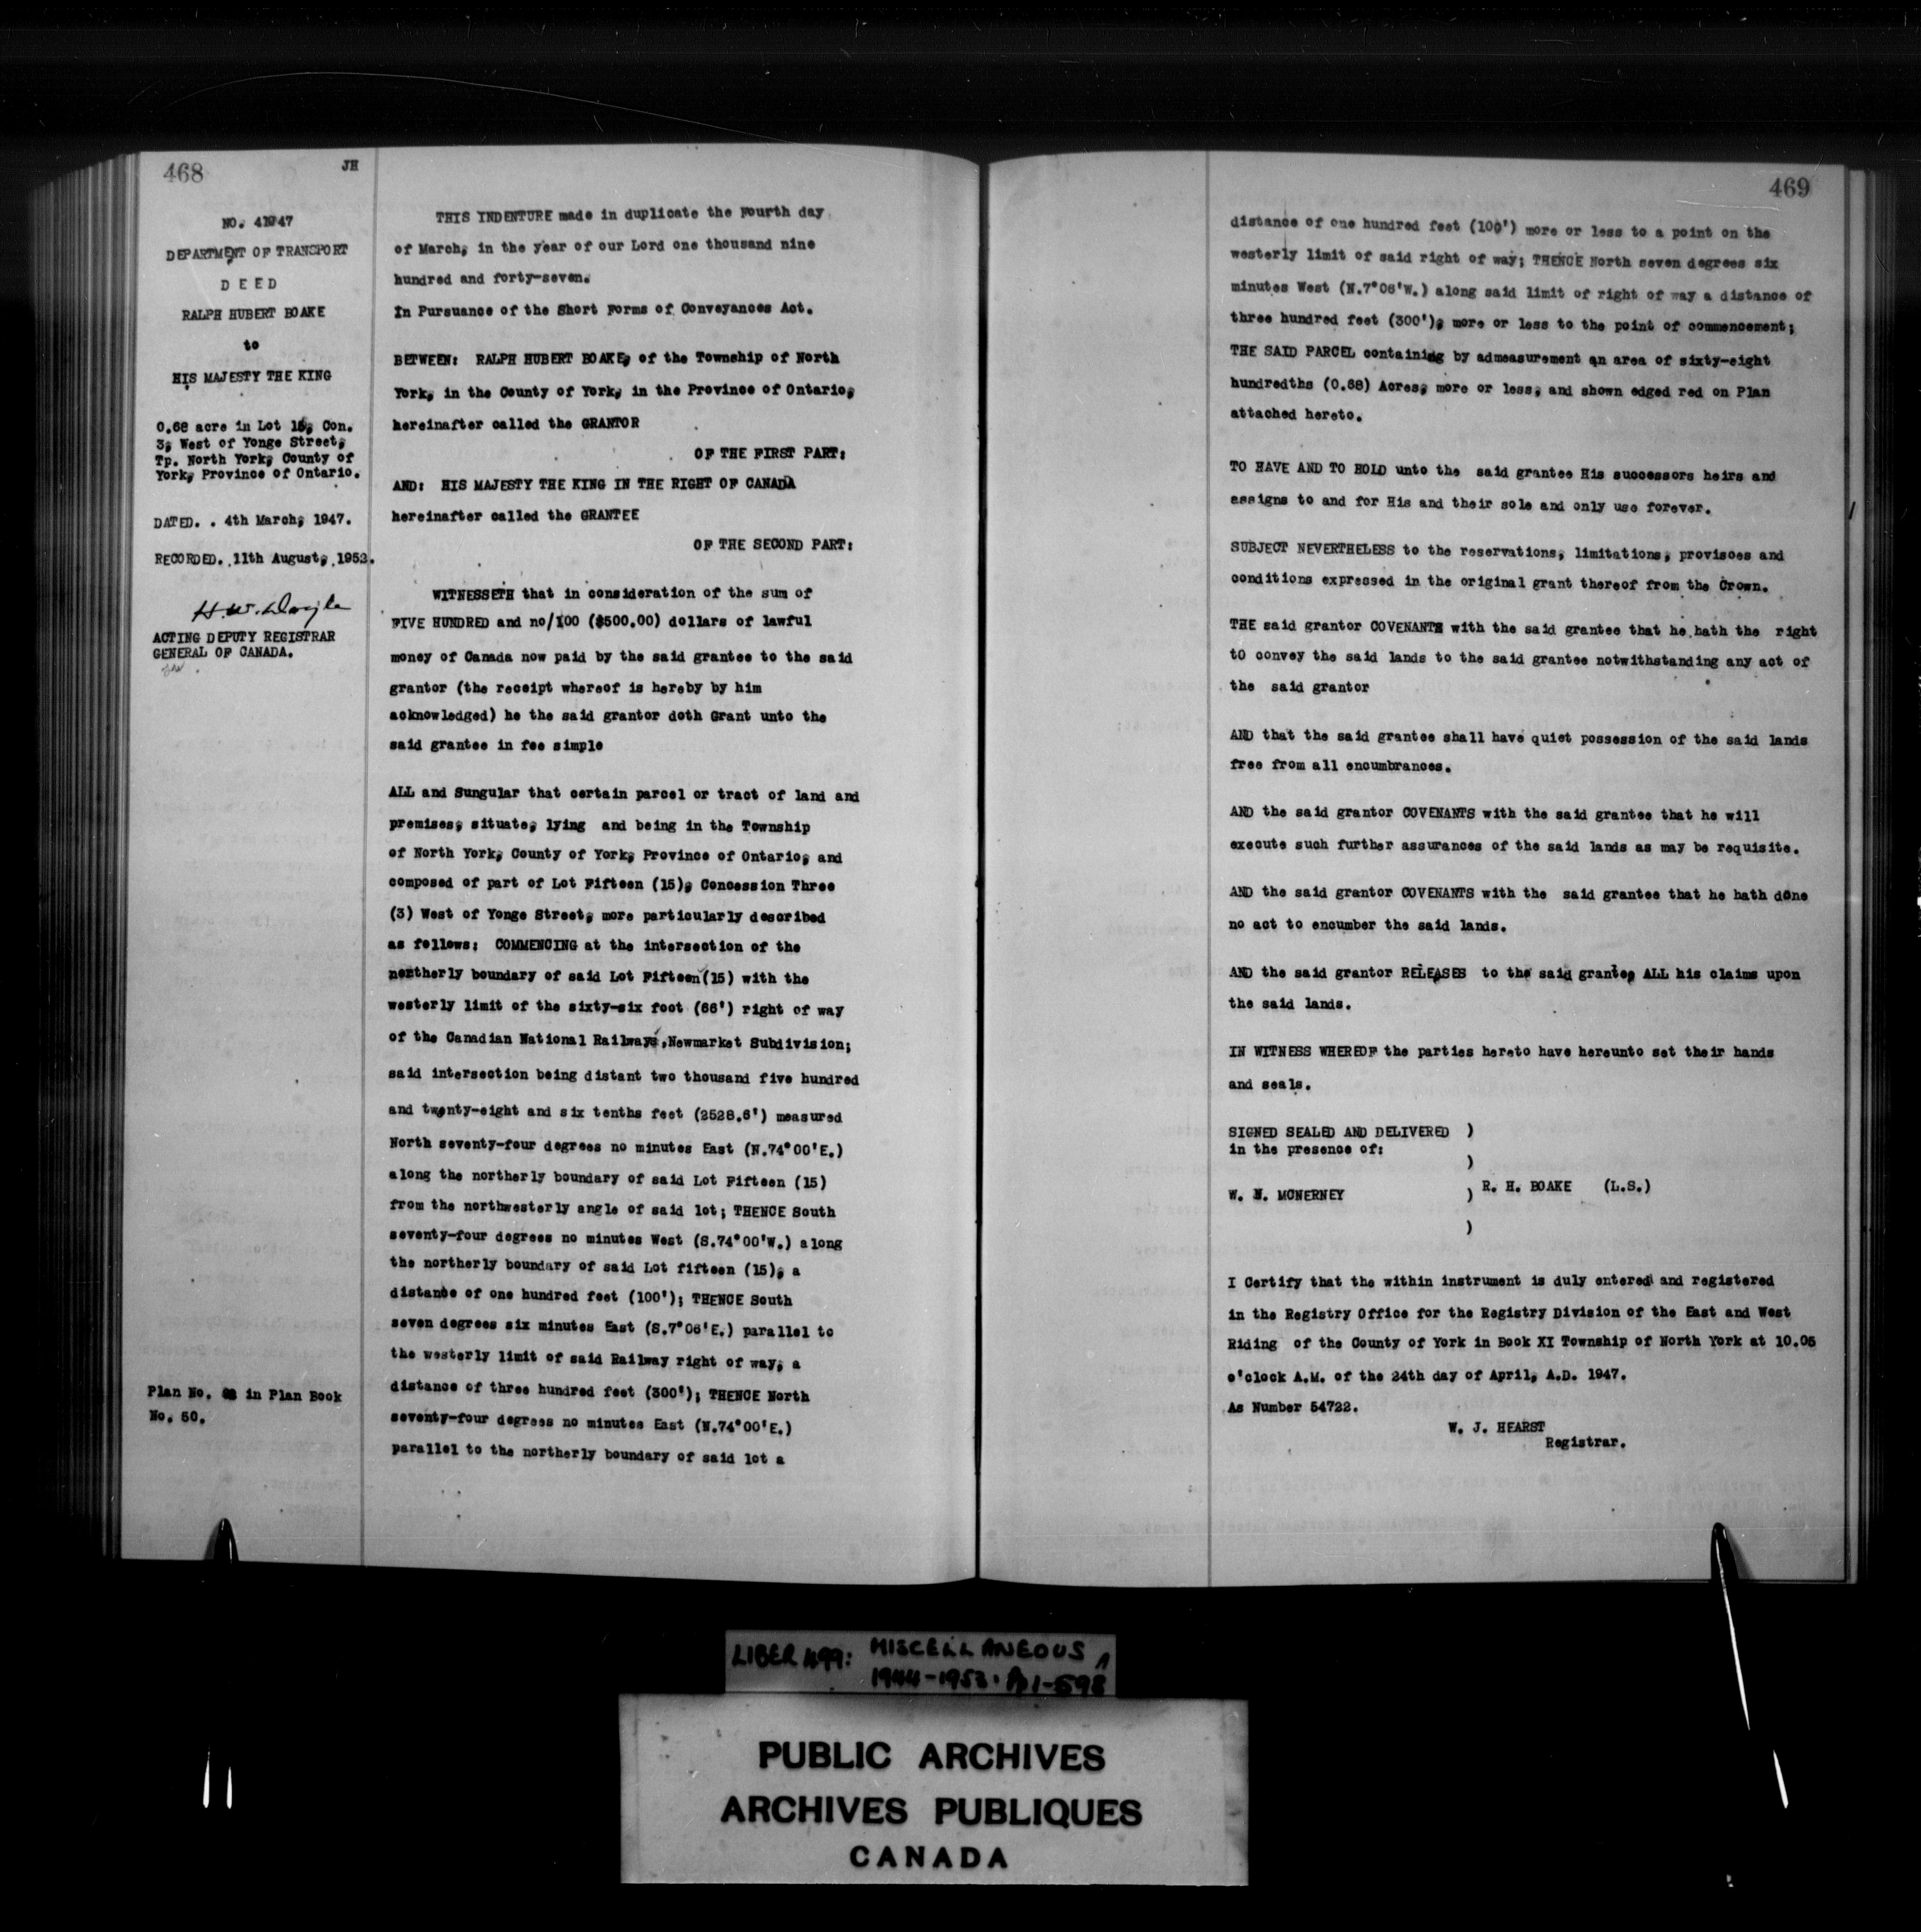 468
JH
NO. 41947
DEPARTMENT OF TRANSPORT
D E E D
RALPH HUBERT BOAKE
to
HIS MAJESTY THE KING
0.68 acre in Lot 15, Con.
3, West of Yonge Street,
Tp. North York, County of
York, Province of Ontario.
DATED. . 4th March, 1947.
RECORDED. .11th August, .1952.
H.W. Doyle
ACTING DEPUTY REGISTRAR
GENERAL OF CANADA.
Plan No. in Plan Book
No. 50.
THIS INDENTURE made in duplicate the Fourth day
of March, in the year of our Lord one thousand nine
hundred and forty-seven.
In Pursuance of the Short Forms of Conveyances Act.
BETWEEN: RALPH HUBERT BOAKE, of the Township of North
York, in the County of York, in the Province of Ontario,
hereinafter called the GRANTOR
OF THE FIRST PART:
AND: HIS MAJESTY THE KING IN THE RIGHT OF CANADA
hereinafter called the GRANTEE
OF THE SECOND PART:
WITNESSETH that in consideration of the sum of
FIVE HUNDRED and no/100 ($500.00) dollars of lawful
money of Canada now paid by the said grantee to the said
grantor (the receipt whereof is hereby by him
acknowledged) he the said grantor doth Grant unto the
said grantee in fee simple
ALL and Sungular that certain parcel or tract of land and
premises, situate, lying and being in the Township
of North York, County of York, Province of Ontario, and
composed of part of Lot Fifteen (15), Concession Three
(3) West of Yonge Street, more particularly described
as follows: COMMENCING at the intersection of the
northerly boundary of said Lot Fifteen (15) with the
westerly limit of the sixty-six foot (66') right of way
of the Canadian National Railways, Newmarket Subdivision;
said intersection being distant two thousand five hundred
and twenty-eight and six tenths feet (2528.6') measured
North seventy-four degrees no minutes East (N.74°00'E.)
along the northerly boundary of said Lot Fifteen (15)
from the northwesterly angle of said lot; THENCE South
seventy-four degrees no minutes West (S.74°00'W.) along
the northerly boundary of said Lot fifteen (15), a
distance of one hundred feet (100'); THENCE South
seven degrees six minutes East (S.7°06'E.) parallel to
the westerly limit of said Railway right of way, a
distance of three hundred feet (300'); THENCE North
seventy-four degrees no minutes East (N.74°00'E.)
parallel to the northerly boundary of said lot a
469
distance of one hundred feet (100') more or less to a point on the
westerly limit of said right of way; THENCE North seven degrees six
minutes West (N.7°06'W.) along said limit of right of way a distance of
three hundred feet (300'), more or less to the point of commencement;
THE SAID PARCEL containing by admeasurement an area of sixty-eight
hundredths (0.68) Acres, more or less, and shown edged red on Plan
attached hereto.
TO HAVE AND TO HOLD unto the said grantee His successors heirs and
assigns to and for His and their sole and only use forever.
SUBJECT NEVERTHELESS to the reservations, limitations, provisoes and
conditions expressed in the original grant thereof from the Crown.
THE said grantor COVENANTS with the said grantee that he hath the right
tO convey the said lands to the said grantee notwithstanding any act of
the said grantor
AND that the said grantee shall have quiet possession of the said lands
free from all encumbrances.
AND the said grantor COVENANTS with the said grantee that he will
execute such further assurances of the said lands as may be requisite.
AND the said grantor COVENANTS with the said grantee that he hath done
no act to encumber the said lands.
AND the said grantor RELEASES to the said grantee ALL his claims upon
the said lands.
IN WITNESS WHEREOF the parties hereto have hereunto set their hands
and seals.
SIGNED SEALED AND DELIVERED )
in the presence of:
)
W. N. MCNERNEY ) R. H. BOAKE (L.S.)
)
I Certify that the within instrument is duly entered and registered
in the Registry Office for the Registry Division of the East and West
Riding of the County of York in Book XI Township of North York at 10.05
o'clock A.M. of the 24th day of April, A.D. 1947.
As Number 54722.
W. J. HEARST
Registrar.
LIBER 499: MISCELLANEOUS
1944-1953. Pp 1-598
PUBLIC ARCHIVES
ARCHIVES PUBLIQUES
CANADA